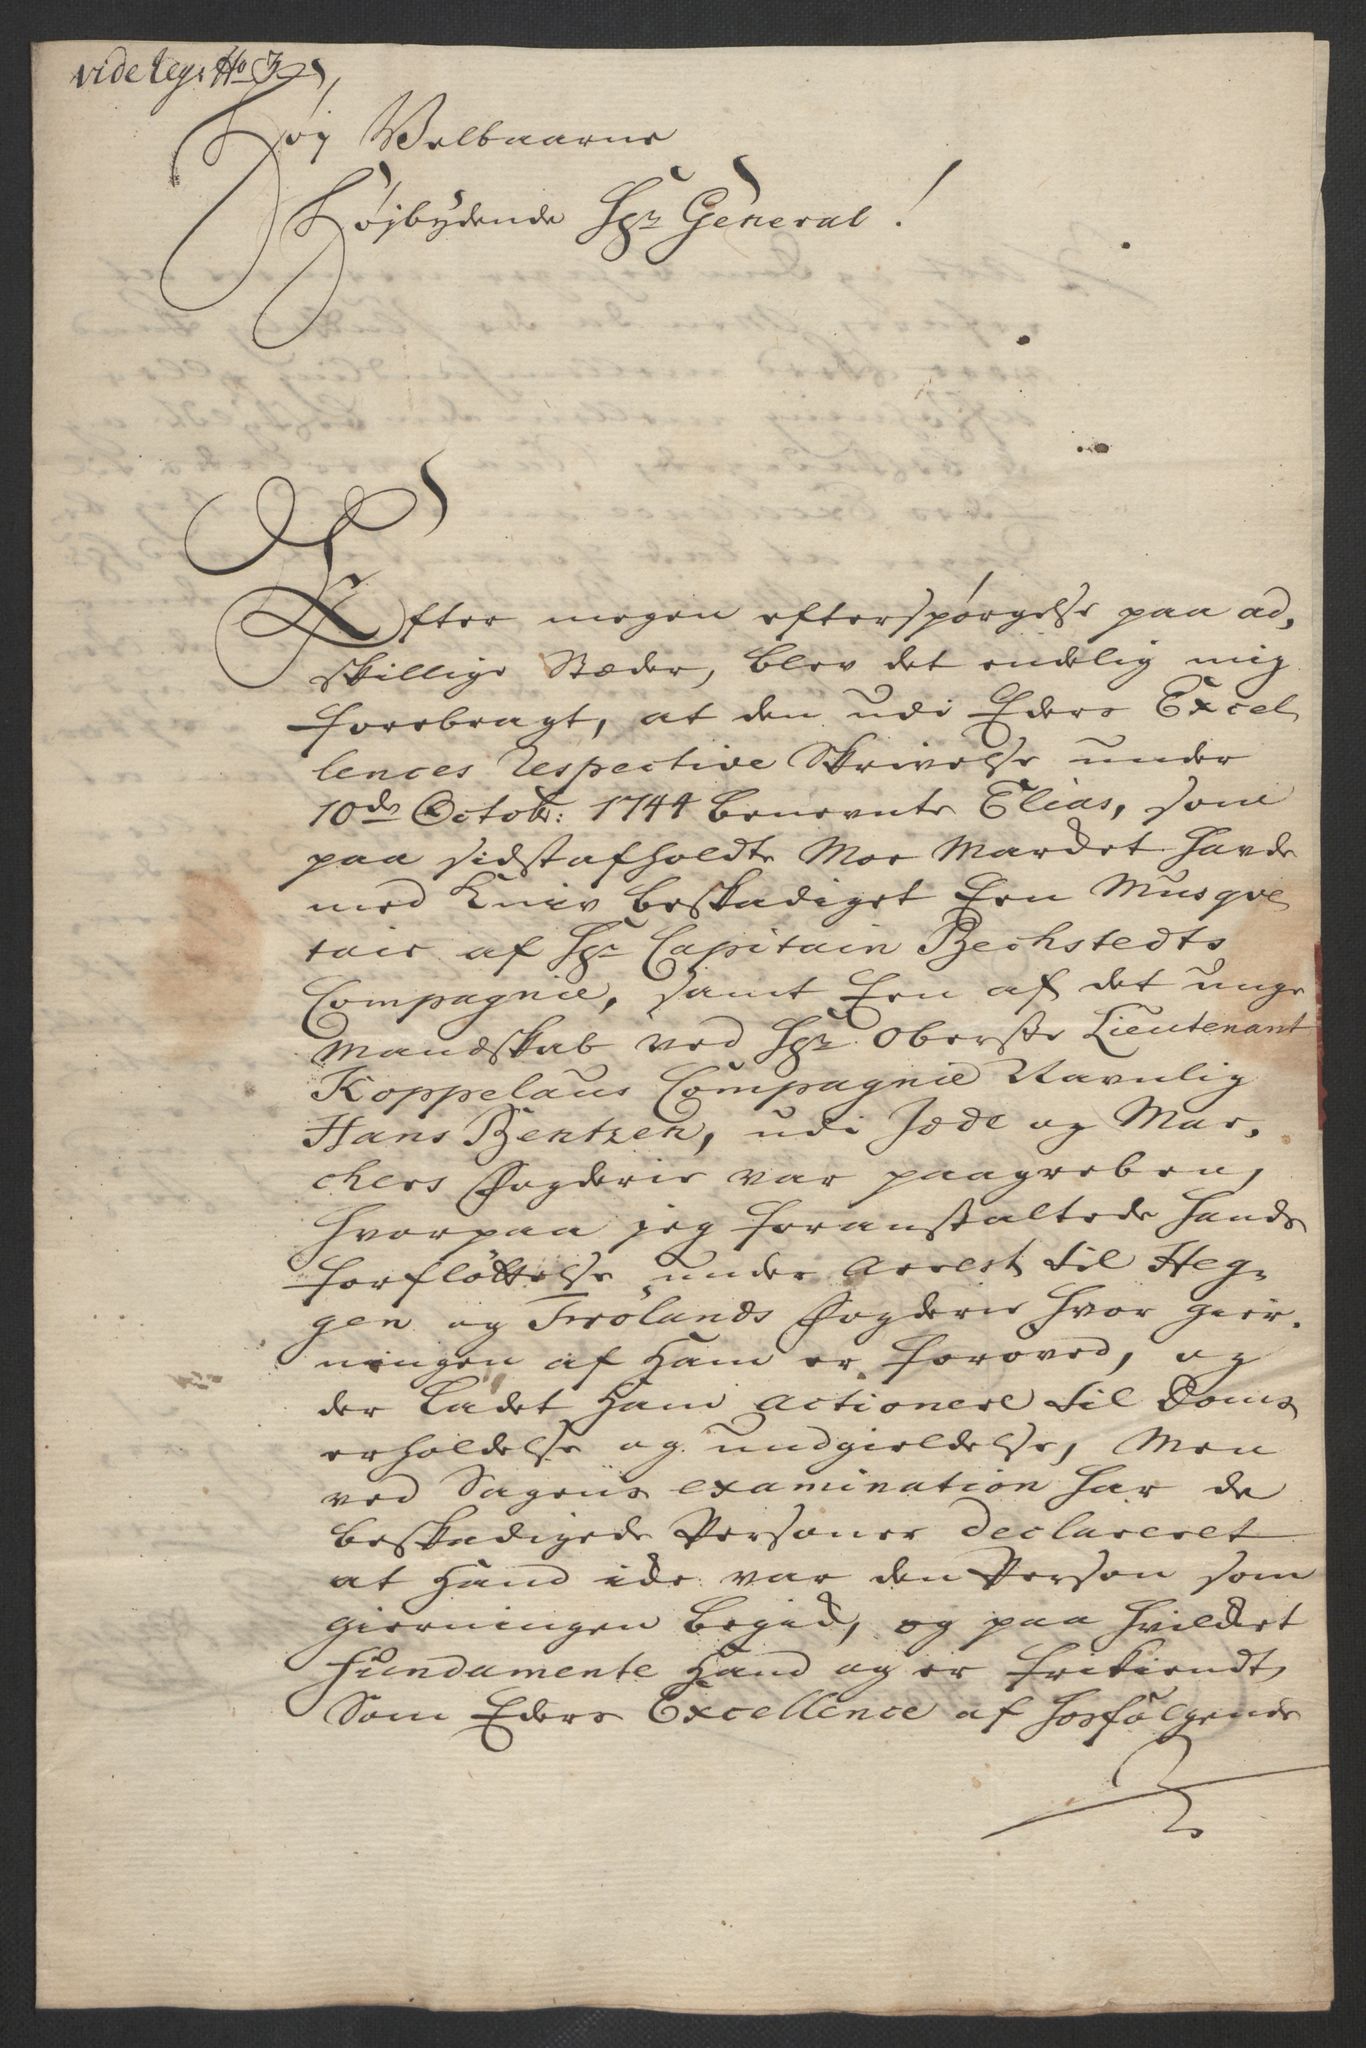 vide Reg: No 3
Høy Velbaarne
Højbydende Hr General!
Efter megen efterspørgelse paa ad,
skillige Stæder, blev det endelig mig
forebragt, at den udi Eders Excel,
lences respective Skrivelse under
10de Octobr: 1744 benevnte Elias, som
paa sidstafholdte Moe Marcket hafde
med Kniv beskadiget Een Musqve
tair af Hr Capitain Bechstedts
Compagnie, samt Een af det unge
Mandskab ved Hr Oberste Lieutenant
Koppelaus Compagnie Navnlig
Hans Bentzen, udi Jæde og Mar,
chers Fogderie var paagreben,
hvorpaa jeg foranstaltede hands
forfløttelse under Arrest til Heg,
gen og Frølands Fogderie hvor gier,
ningen af ham er forøved, og
der ladet ham actionere til Doms
erholdelse og undgieldelse, Men
ved Sagens examination har de
beskadigede Personer declareret
at hand icke var den Person som
gierningen begick, og paa hvilcket
fundamente hand og er frikiendt,
Som Eders Excellence af hosfølgende